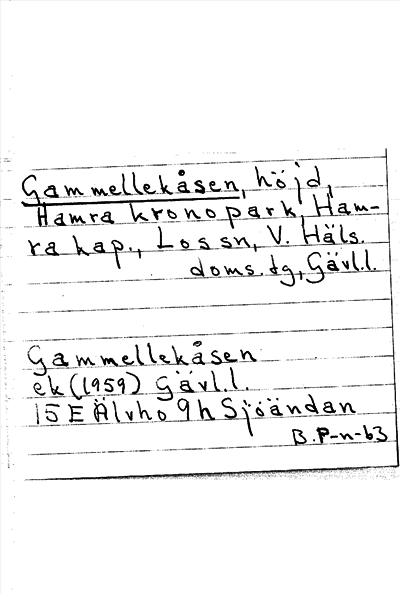 Gammellekåsen, höjd,
Hamra kronopark, Ham-
ra kap., Los sn, V. Häls.
doms. dg, Gävl.l.
Gammellekåsen
ek (1959) Gävl.l.
15 E Älvho 9h Sjöändan
B. P-n-63